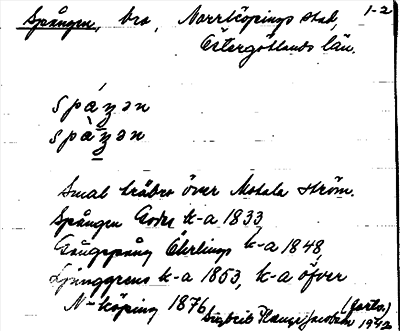 Spången, bro, Norrköpings stad, 1-2
Östergötlands län.
spáŋən
spà̱ŋən
Smal träbro över Motala ström.
Spången Goder k-a 1833,
Gångspång Öhrlings k-a 1848,
Ljunggrens k-a 1853, k-a öfver
N-köping 1876 (forts.)
Sigbrit Plænge Jacobson 1942